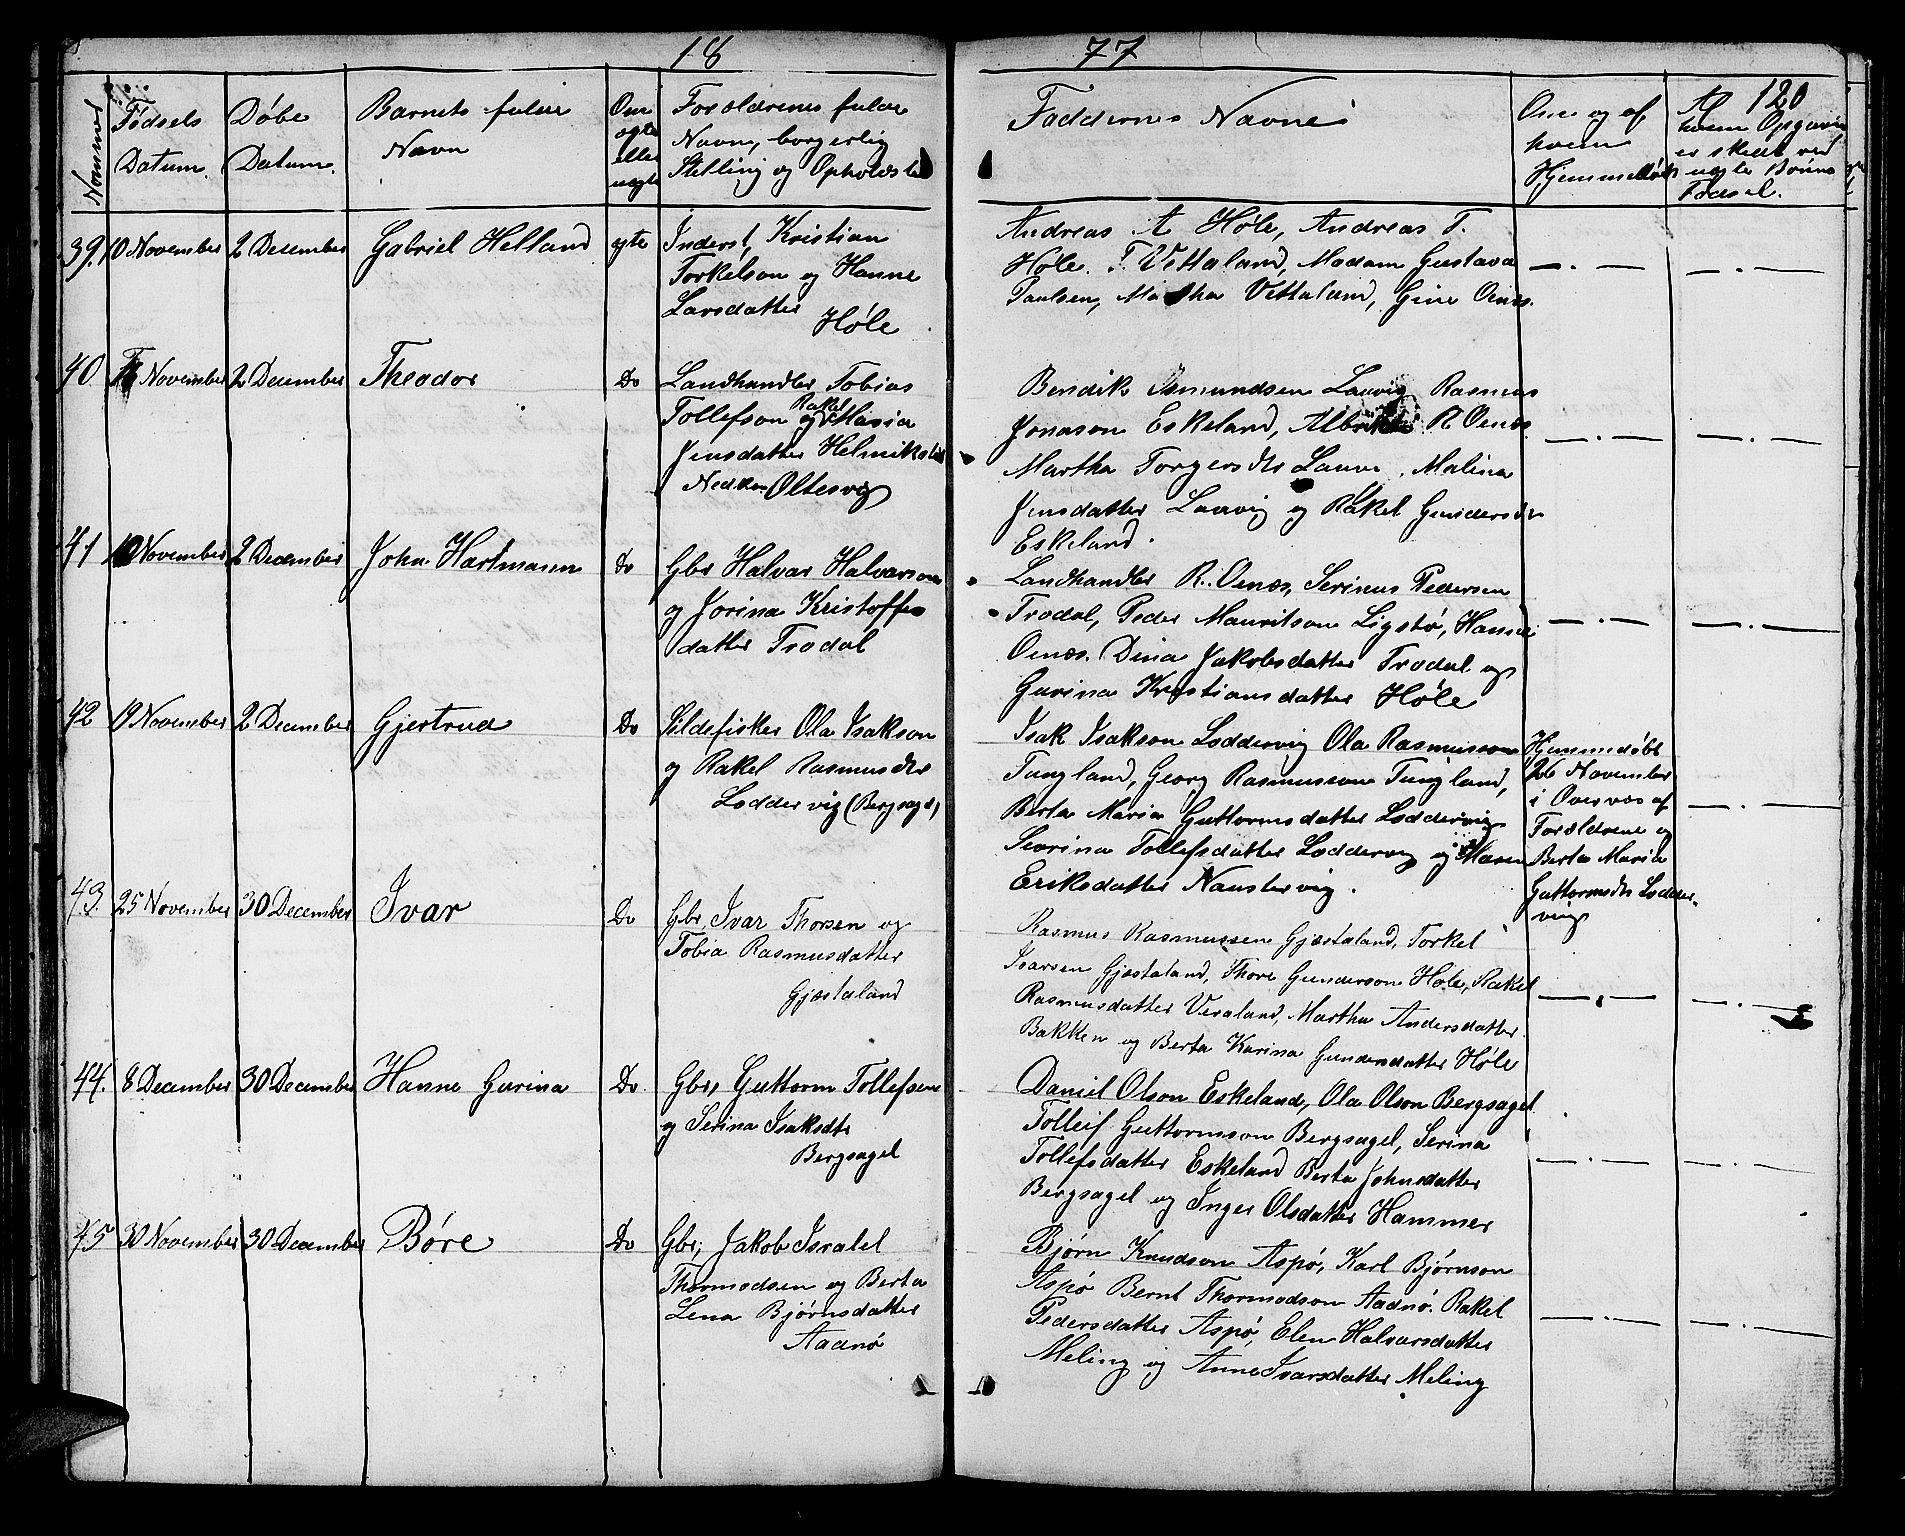 18 77
120
Nommer
Fødsels
Datum.
Døbe
Datum.
Barnets fulde
Navn
Om
ægte
eller
uægte
Forældrenes fulde
Navne, borgerlig
Stilling og Opholdsste
Faddernes Navne
Om og af
hvem
Hjemmedøbt
Af
hvem Opgavn
er skedt ved
uægte Børns
Fødsel.
39. 10 November 2 Desember Gabriel Helland ægte
Inderst, Kristian
Torkelson og Hanne
Larsdatter
Høle
Andreas A Høle, Andreas T.
Høle. T. Vettaland, Madam Gustava
Paulsen, Martha Vettaland, Gine Oenæs.
40 November 2 December Theodor Do
Landhandler Tobias
Tollefson og Rakel Maria
Jensdatter Helmikslid
Oltesvig
Bendik Asmundsen Lauvig Rasmus
Jonason Eskeland, R. Oenæs.
Martha Torgersdtr Lauvi, Malina
Jensdatter Lauvig og Rakel Gundersdtr
Eskeland.
41 10 November 2 December John Hartmann Do
Gbr Halvar Halvarson
og Jorina Kristoffers
datter Trodal
Landhandler R. Oenæs, Serinus Pedersen
Trodal, Peder Mauritson Ligstø, Hanne
Oenæs. Dina Jakobsdatter Trodal og
Gurina Kristiansdatter Høle
42 19 November 2 December Gjertrud Do
Sildefisker Ola Isakson
og Rakel Rasmusdtr
Loddervig (Bergsagel)
Isak Isakson Loddervig Ola Rasmusson
Tungland, Georg Rasmusson Tungland,
Berta Maria Guttormsdatter Loddervig
Serina Tollefsdatter Loddervig og Maren
Eriksdatter Naustervig.
Hjemmedøbt
26 November
i Overvær af
Forældrene og
Berta Maria
Guttormsdtr Lodder-
vig
43. 25 November 30 December Ivar Do
Gbr, Ivar Thorsen og
Tobia Rasmusdatter
Gjæstaland
Rasmus Rasmussen Gjæstaland, Torkel
Ivarsen Gjæstaland, Thore Gunderson Høle, Rakel
Rasmusdatter Veraland, Martha Andersdatter
Bakken og Berta Karina Gundersdatter Høle
44. 8 December 30 December Hanne Gurina Do.
Gbr, Guttorm Tollefsen
og Serina Isaksdtr
Bergsagel
Daniel Olson Eskeland, Ola Olson Bergsagel
Tolleif Guttormson Bergsagel, Serina
Tollefsdatter Eskeland Berta Johnsdatter
Bergsagel og Inger Olsdatter Hammer
45 30 November 30 December Børe Do
Gbr, Jakob Israel
Thormodsen og Berta
Lena Bjørnsdatter
Aadnø
Bjørn Knudson Aspø, Karl Bjørnson
Aspø Bernt Thormodson Aadnø. Rakel
Pedersdatter Aspø, Elen Halvarsdatter
Meling og Anne Ivarsdatter Meling